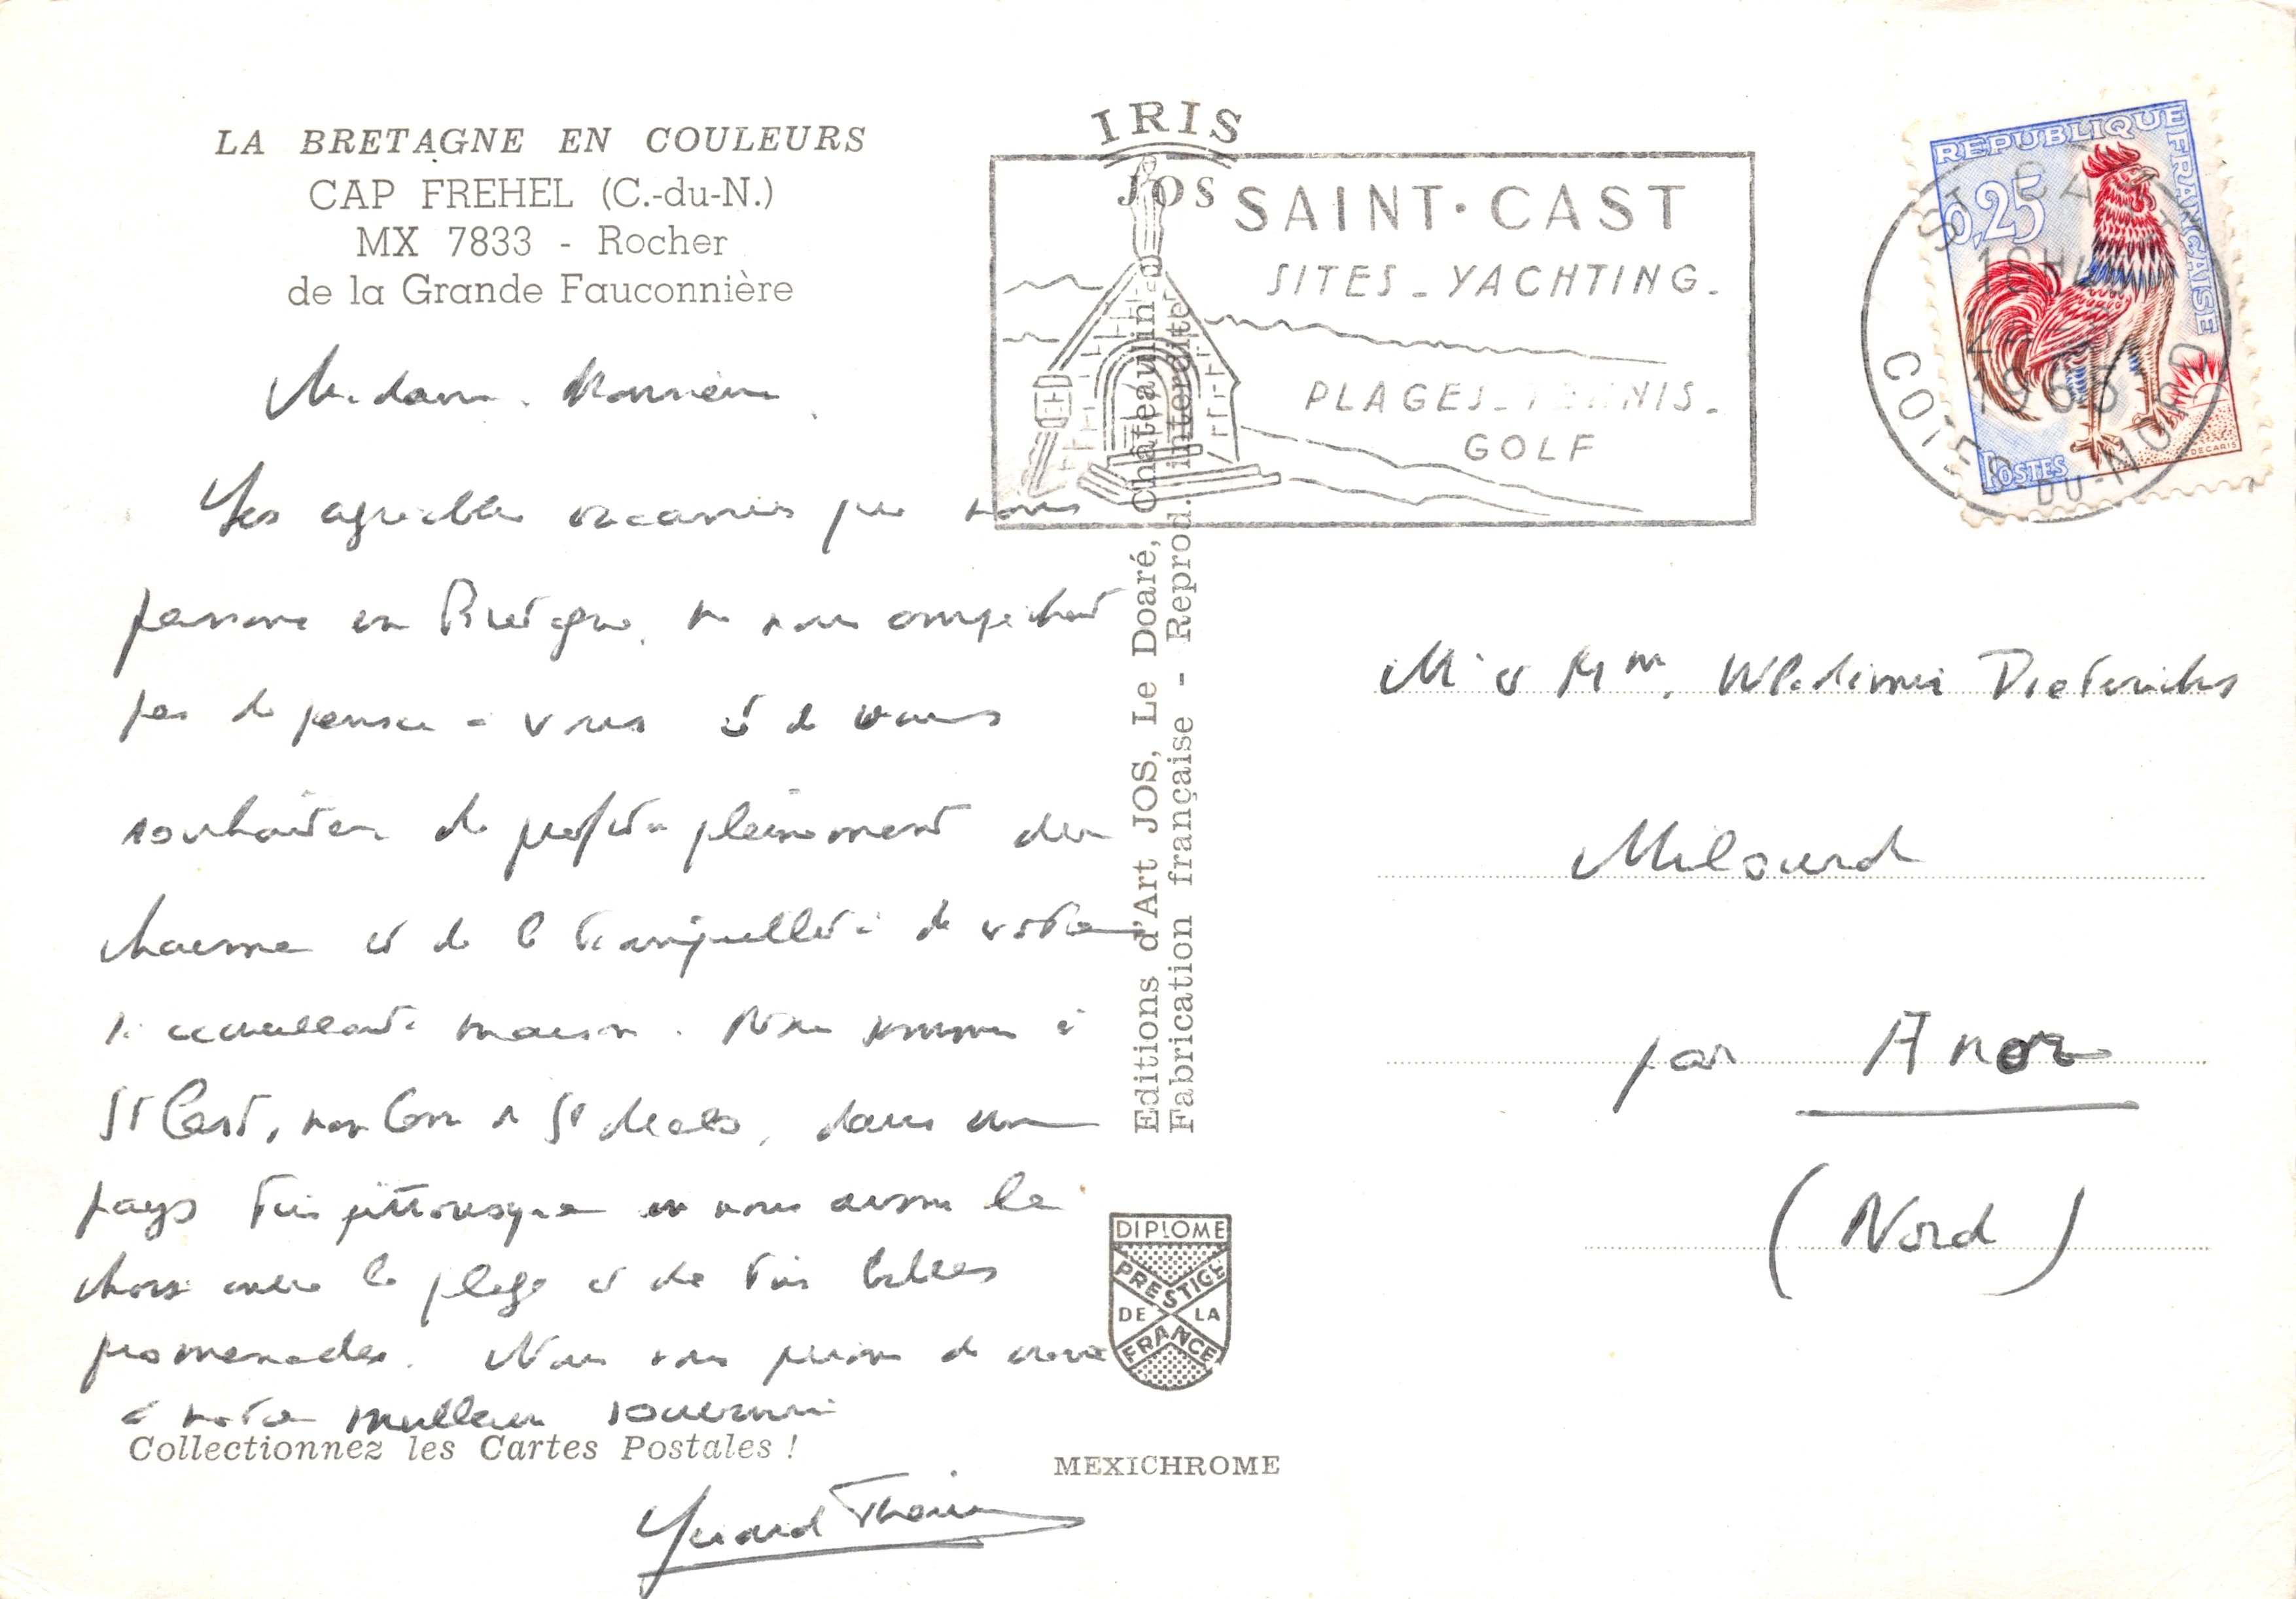 LA BRETAGNE EN COULEURS
CAP FREHEL (C.-du-N.)
MX 7833 - Rocher
de la Grande Fauconnière
Madame, Monsieur,
Les agréables vacances que nous
passons en Bretagne, ne nous empêchent
pas de penser à vous et de vous
souhaiter de profiter pleinement du
charme et de la tranquillité de votre
si accueillante maison. Nous sommes à
St Cast, non loin de St Malo, dans un
pays très pittoresque où nous avons le
choix entre la plage et de très belles
promenades. Nous vous prions de croire
à notre meilleur souvenir
Collectionnez les Cartes Postales !
Gérard
IRIS
JOS
Editions d'Art JOS, Le Doaré, Châteaulin
Fabrication française - Reprod. interdite
DIPLOME
PRESTIGE
DE LA
FRANCE
MEXICHROME
SAINT-CAST
SITES - YACHTING -
PLAGES - TENNIS -
GOLF
REPUBLIQUE FRANÇAISE
0,25
POSTES
DECARIS
ST CAST
18H
1965
COTES DU-NORD
Mr et Mme Wladimir
Milourd
par Anor
(Nord)